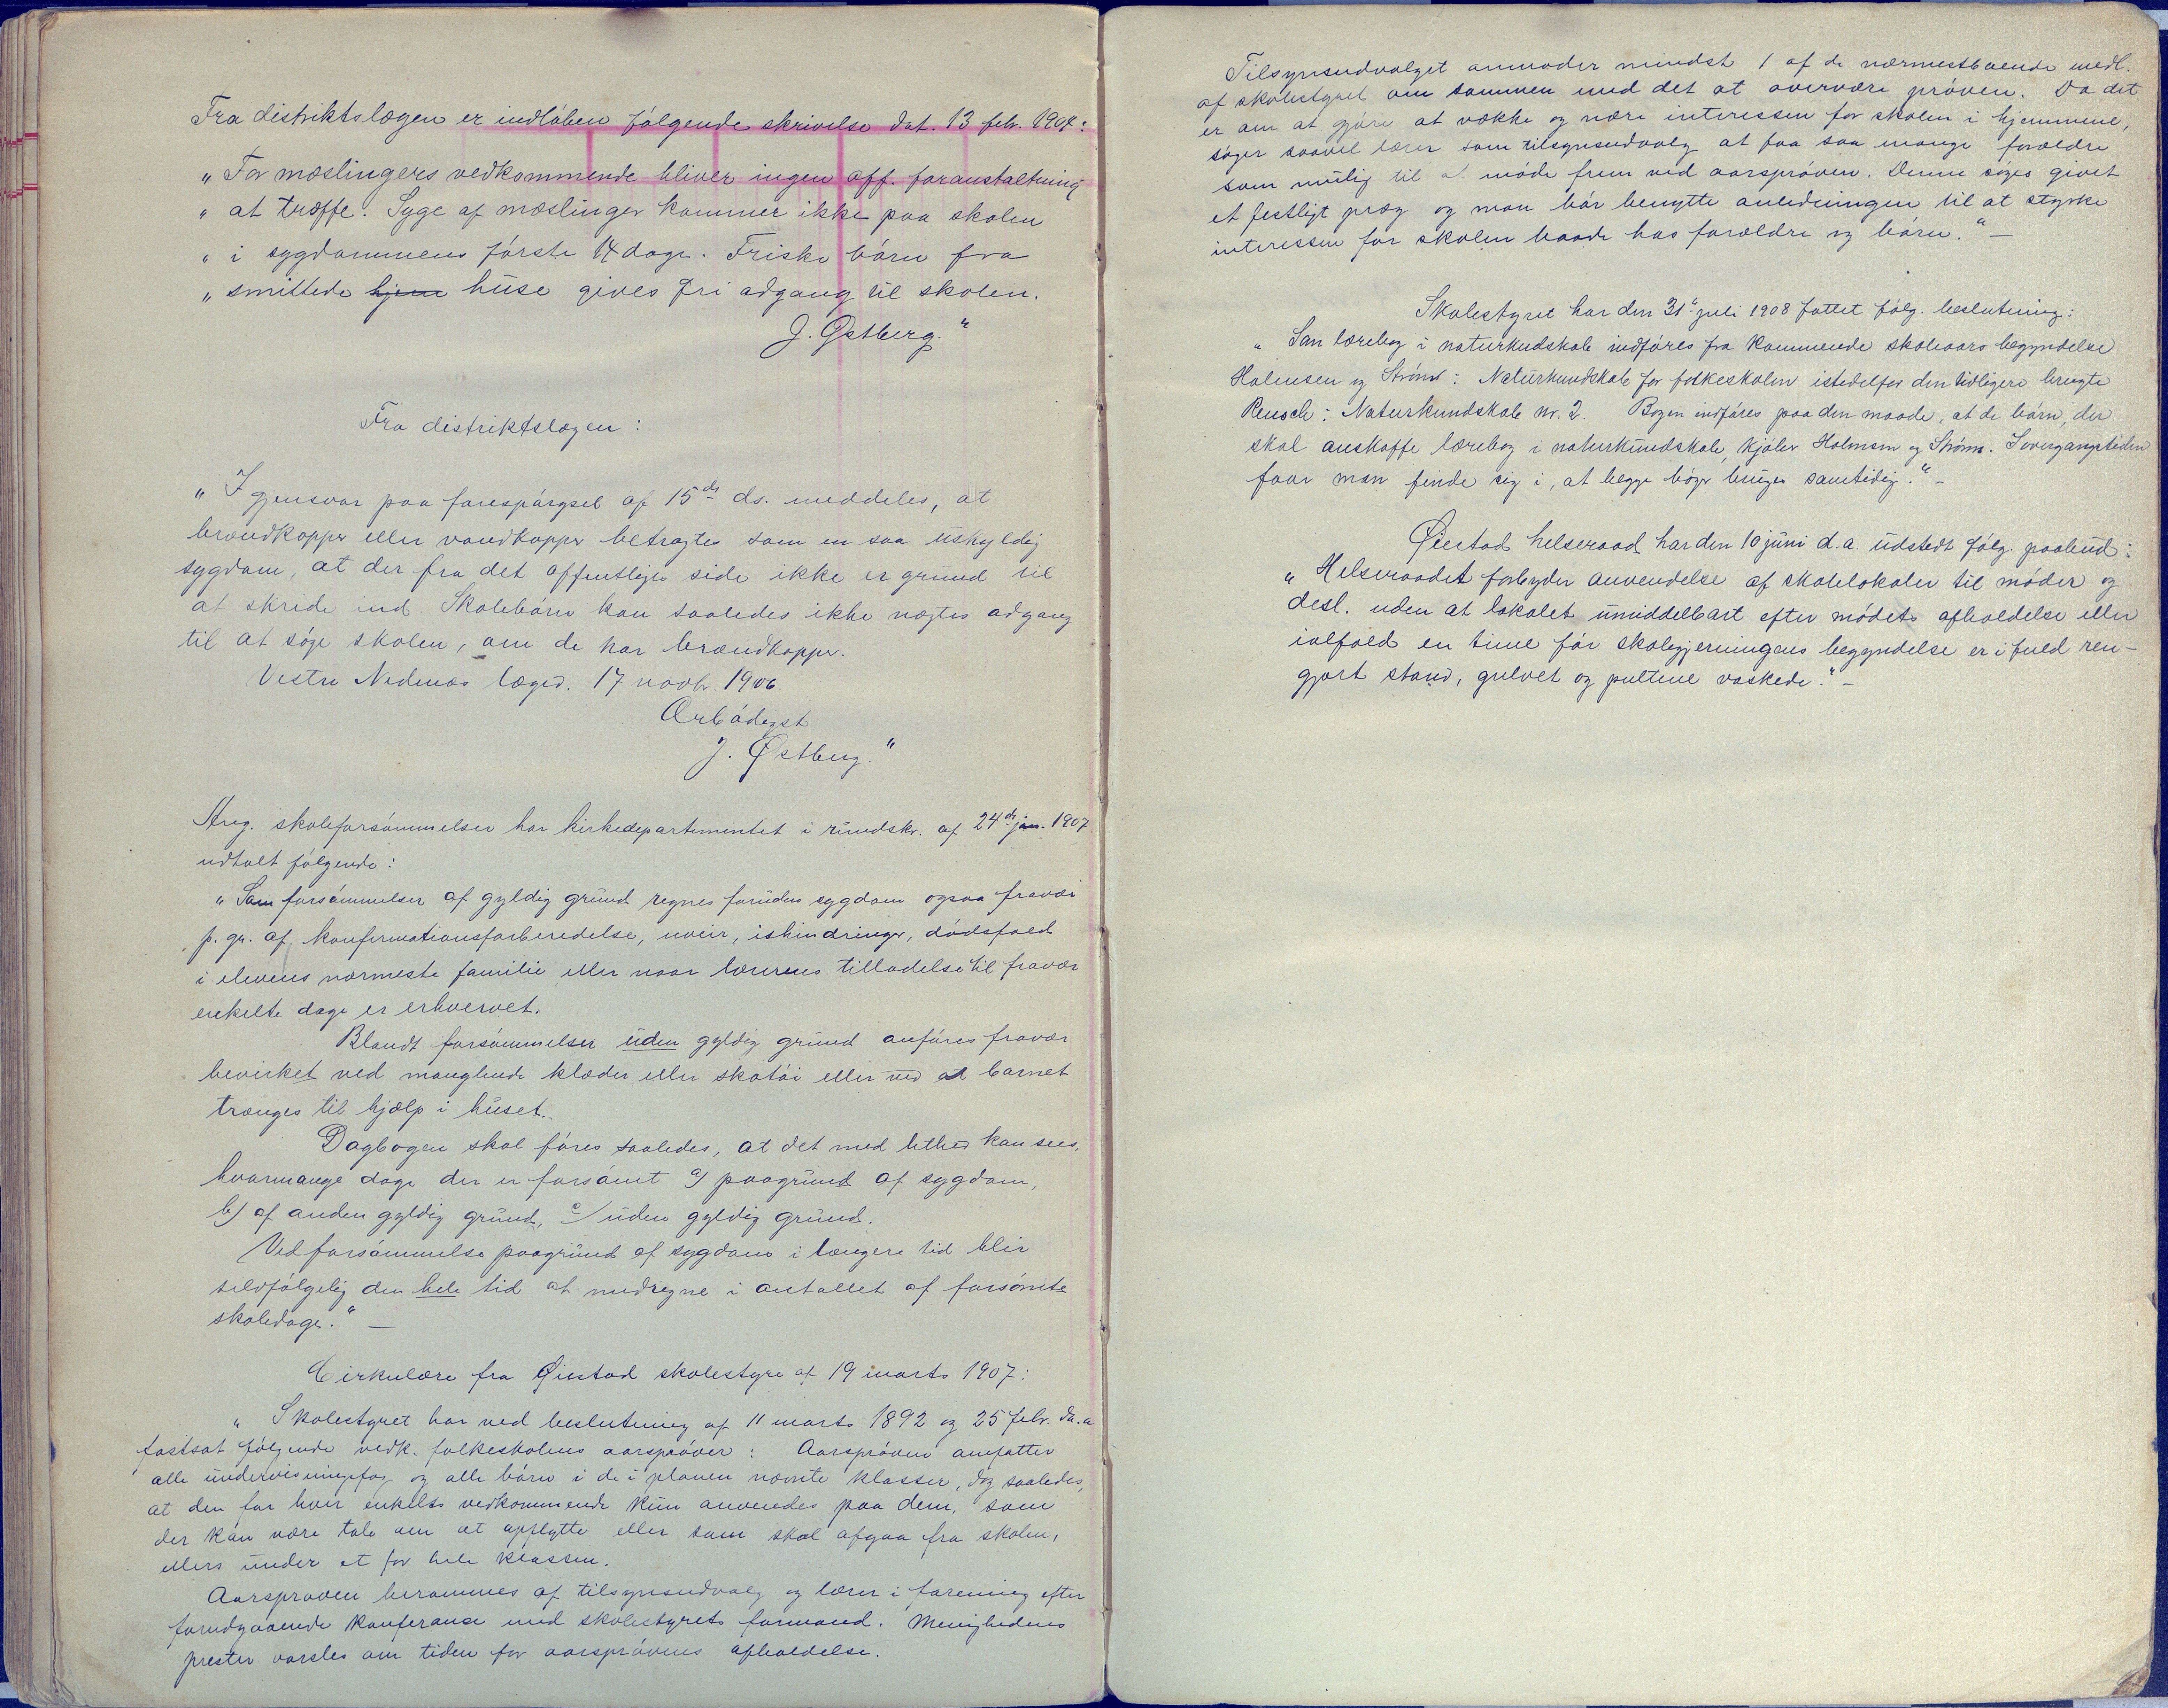 Fra distriktslægen er indløben følgende skrivelse dat. 13 febr. 1904:
„ For mæslingers vedkommende bliver ingen off. foranstaltning
„ at træffe. Syge af mæslinger kommer ikke paa skolen
„ i sygdommens første 14 dage. Friske børn fra
„ smittede hjem huse gives fri adgang til skolen.
J. Østberg.“
Fra distriktslægen:
„ I gjensvar paa forespørgsel af 15de ds. meddeles, at
brændkopper eller vandkopper betragtes som en saa uskyldig
sygdom, at der fra det offentliges side ikke er grund til
at skride ind. Skolebørn kan saaledes ikke nægtes adgang
til at søge skolen, om de har brændkopper.
Vestre Nedenæs læged. 17 novbr. 1906.
Ærbødigst
J. Østberg.“
Ang. skoleforsømmelser har kirkedepartementet i rundskr. af 24de jan. 1907
udtalt følgende:
„ Som forsømmelser af gyldig grund regnes foruden sygdom ogsaa fravær
p. gr. af konfirmationsforberedelse, uveir, ishindringer, dødsfald
i elevens nærmeste familie eller naar lærerens tilladelse til fravær
enkelte dage er erhvervet.
Blandt forsømmelser uden gyldig grund anføres fravær
bevirket ved manglende klæder eller skotøi eller ved at barnet
trænges til hjælp i huset.
Dagbogen skal føres saaledes, at det med lethed kan sees,
hvormange dage der er forsømt a) paagrund af sygdom,
b) af anden gyldig grund, c) uden gyldig grund.
Ved forsømmelse paagrund af sygdom i længere tid blir
selvfølgelig den hele tid at medregne i antallet af forsømte
skoledage.“ —
Cirkulære fra Øiestad skolestyre af 19 marts 1907:
„ Skolestyret har ved beslutning af 11 marts 1892 og 25 febr. d.a.
fastsat følgende vedk. folkeskolens aarsprøver: Aarsprøven omfatter
alle undervisningsfag og alle børn i de i planen nævnte klasser, dog saaledes,
at den for hver enkelts vedkommende kun anvendes paa dem, som
der kan være tale om at opflytte eller som skal afgaa fra skolen,
ellers under et for hele klassen.
Aarsprøven berammes af tilsynsudvalg og lærer i forening efter
forudgaaende konferanse med skolestyrets formand. Menighedens
prester varsles om tiden for aarsprøvens afholdelse.
Tilsynsudvalget anmoder mindst 1 af de nærmestboende medl.
af skolestyret om sammen med det at overvære prøven. Da det
er om at gjøre at vække og nære interessen for skolen i hjemmene,
søger saavel lærer som tilsynsudvalg at faa saa mange forældre
som mulig til at møde frem ved aarsprøven. Denne søges givet
et festligt præg og man bør benytte anledningen til at styrke
interessen for skolen baade hos forældre og børn.“ —
Skolestyret har den 31te juli 1908 fattet følg. beslutning:
„ Som lærebog i naturkudskab indføres fra kommende skoleaars begyndelse
Holmsen og Strøms: Naturkundskab for folkeskolen istedetfor den tidligere brugte
Reusch: Naturkundskab nr. 2. Bogen indføres paa den maade, at de børn, der
skal anskaffe lærebog i naturkundskab, kjøber Holmsen og Strøms. I overgangstiden
faar man finde sig i, at begge bøger bruges samtidig.“ —
Øiestad helseraad har den 10 juni d.a. udstedt følg. paabud:
„ Helseraadet forbyder anvendelse af skolelokaler til møder og
desl. uden at lokalet umiddelbart efter mødets afholdelse eller
ialfald en time før skolegjerningens begyndelse er i fuld ren-
gjort stand, gulvet og pultene vaskede.“ —